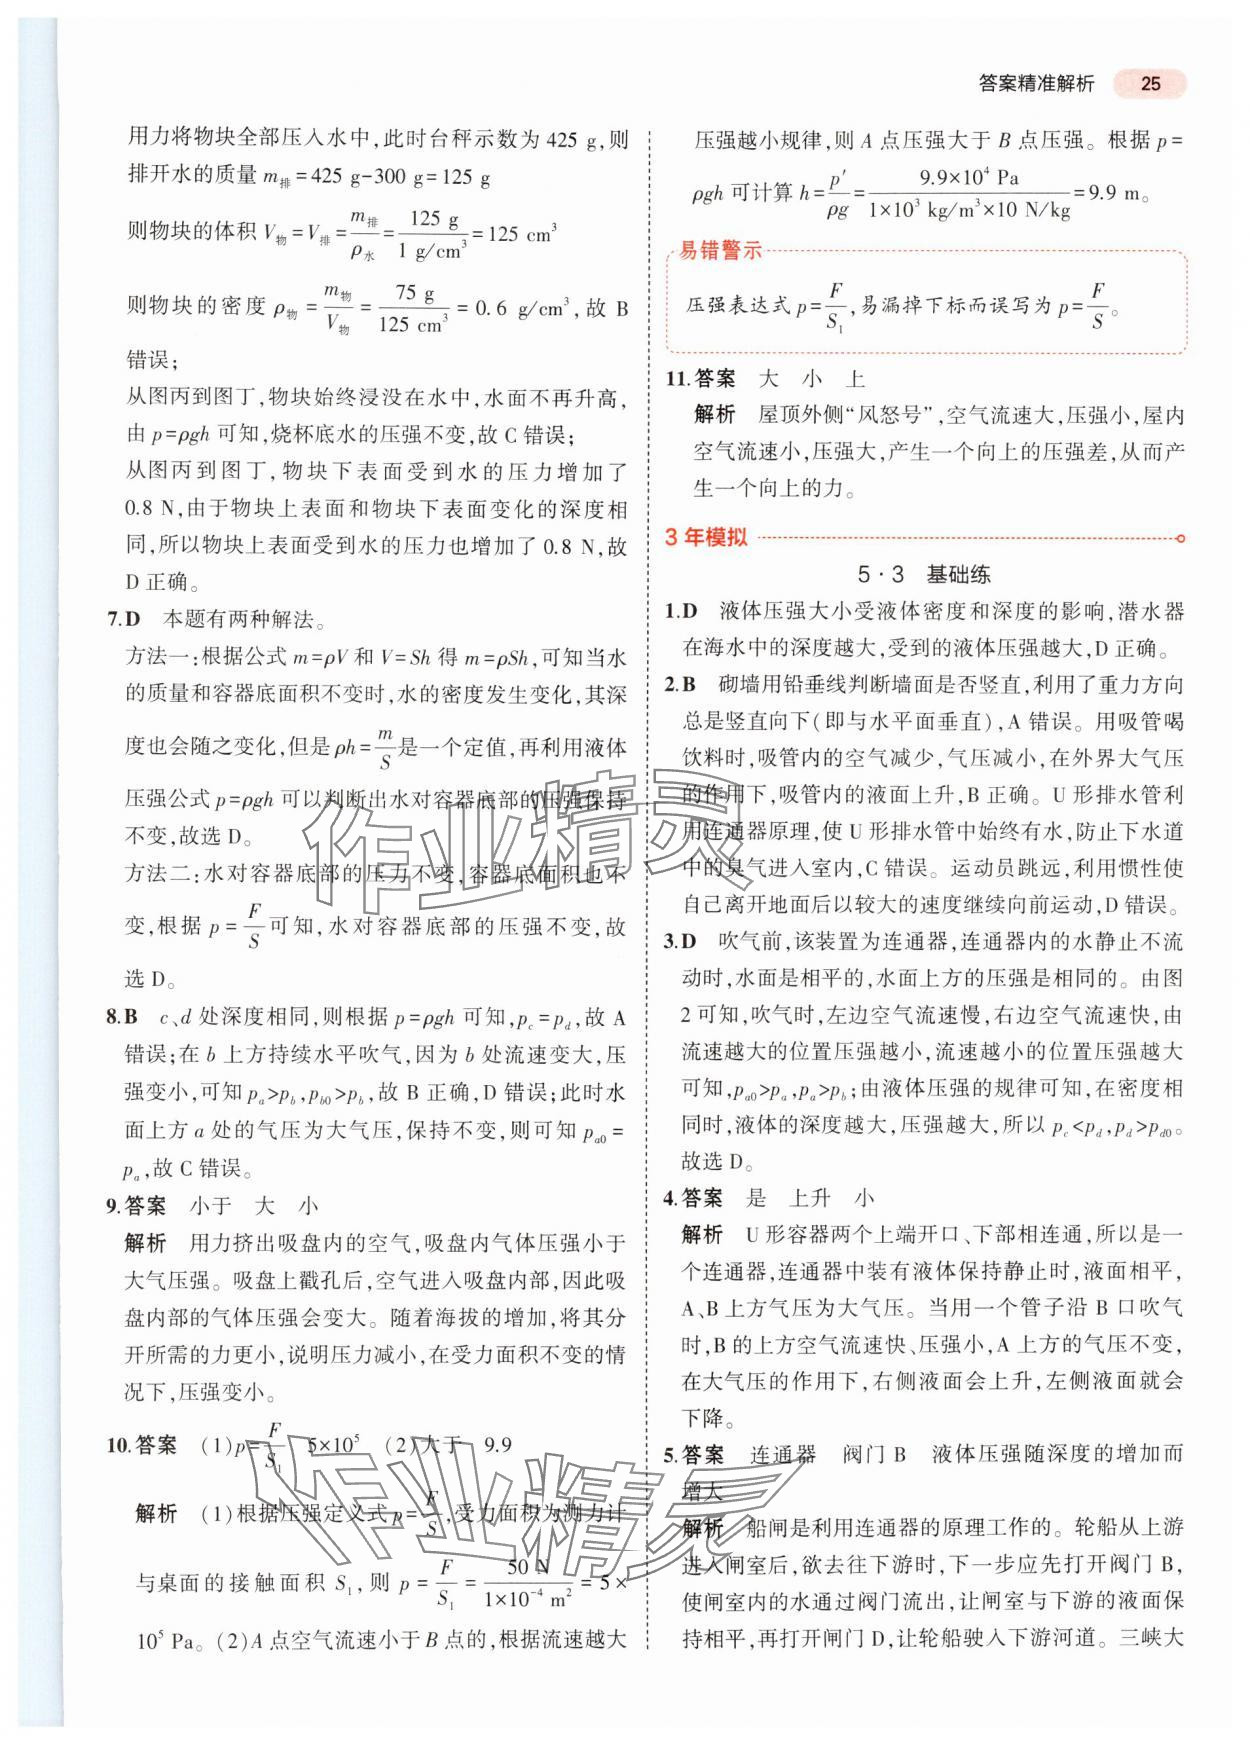 答案精准解析 25
用力将物块全部压入水中,此时台秤示数为 425 g,则
排开水的质量 m排=425 g-300 g=125 g
则物块的体积 V物=V排=m排/ρ水=125 g/1 g/cm³=125 cm³
则物块的密度 ρ物=m物/V物=75 g/125 cm³=0.6 g/cm³,故 B
错误;
从图丙到图丁,物块始终浸没在水中,水面不再升高,
由 p=ρgh 可知,烧杯底水的压强不变,故 C 错误;
从图丙到图丁,物块下表面受到水的压力增加了
0.8 N,由于物块上表面和物块下表面变化的深度相
同,所以物块上表面受到水的压力也增加了 0.8 N,故
D 正确。
7.D 本题有两种解法。
方法一:根据公式 m=ρV 和 V=Sh 得 m=ρSh,可知当水
的质量和容器底面积不变时,水的密度发生变化,其深
度也会随之变化,但是 ρh=m/S是一个定值,再利用液体
压强公式 p=ρgh 可以判断出水对容器底部的压强保持
不变,故选 D。
方法二:水对容器底部的压力不变,容器底面积也不
变,根据 p=F/S可知,水对容器底部的压强不变,故
选 D。
8.B c、d 处深度相同,则根据 p=ρgh 可知,pc=pd,故 A
错误;在 b 上方持续水平吹气,因为 b 处流速变大,压
强变小,可知 pa>pb,pb0>pb,故 B 正确,D 错误;此时水
面上方 a 处的气压为大气压,保持不变,则可知 pa0=
pa,故 C 错误。
9.答案 小于 大 小
解析 用力挤出吸盘内的空气,吸盘内气体压强小于
大气压强。吸盘上戳孔后,空气进入吸盘内部,因此吸
盘内部的气体压强会变大。随着海拔的增加,将其分
开所需的力更小,说明压力减小,在受力面积不变的情
况下,压强变小。
10.答案 (1)p=F/S₁ 5×10⁵ (2)大于 9.9
解析 (1)根据压强定义式 p=F/S,受力面积为测力计
与桌面的接触面积 S₁,则 p=F/S₁=50 N/1×10⁻⁴ m²=5×
10⁵ Pa。(2)A 点空气流速小于 B 点的,根据流速越大
压强越小规律,则 A 点压强大于 B 点压强。根据 p=
ρgh 可计算 h=p′/ρg=9.9×10⁴ Pa/1×10³ kg/m³×10 N/kg=9.9 m。
易错警示
压强表达式 p=F/S₁,易漏掉下标而误写为 p=F/S。
11.答案 大 小 上
解析 屋顶外侧“风怒号”,空气流速大,压强小,屋内
空气流速小,压强大,产生一个向上的压强差,从而产
生一个向上的力。
3 年模拟
5·3 基础练
1.D 液体压强大小受液体密度和深度的影响,潜水器
在海水中的深度越大,受到的液体压强越大,D 正确。
2.B 砌墙用铅垂线判断墙面是否竖直,利用了重力方向
总是竖直向下(即与水平面垂直),A 错误。用吸管喝
饮料时,吸管内的空气减少,气压减小,在外界大气压
的作用下,吸管内的液面上升,B 正确。U 形排水管利
用连通器原理,使 U 形排水管中始终有水,防止下水道
中的臭气进入室内,C 错误。运动员跳远,利用惯性使
自己离开地面后以较大的速度继续向前运动,D 错误。
3.D 吹气前,该装置为连通器,连通器内的水静止不流
动时,水面是相平的,水面上方的压强是相同的。由图
2 可知,吹气时,左边空气流速慢,右边空气流速快,由
流速越大的位置压强越小,流速越小的位置压强越大
可知,pa0>pa,pa>pb;由液体压强的规律可知,在密度相
同时,液体的深度越大,压强越大,所以 pc<pd,pd>pd0。
故选 D。
4.答案 是 上升 小
解析 U 形容器两个上端开口、下部相连通,所以是一
个连通器,连通器中装有液体保持静止时,液面相平,
A、B 上方气压为大气压。当用一个管子沿 B 口吹气
时,B 的上方空气流速快、压强小,A 上方的气压不变,
在大气压的作用下,右侧液面会上升,左侧液面就会
下降。
5.答案 连通器 阀门 B 液体压强随深度的增加而
增大
解析 船闸是利用连通器的原理工作的。轮船从上游
进入闸室后,欲去往下游时,下一步应先打开阀门 B,
使闸室内的水通过阀门流出,让闸室与下游的液面保
持相平,再打开闸门 D,让轮船驶入下游河道。三峡大
作业精灵
作业精灵